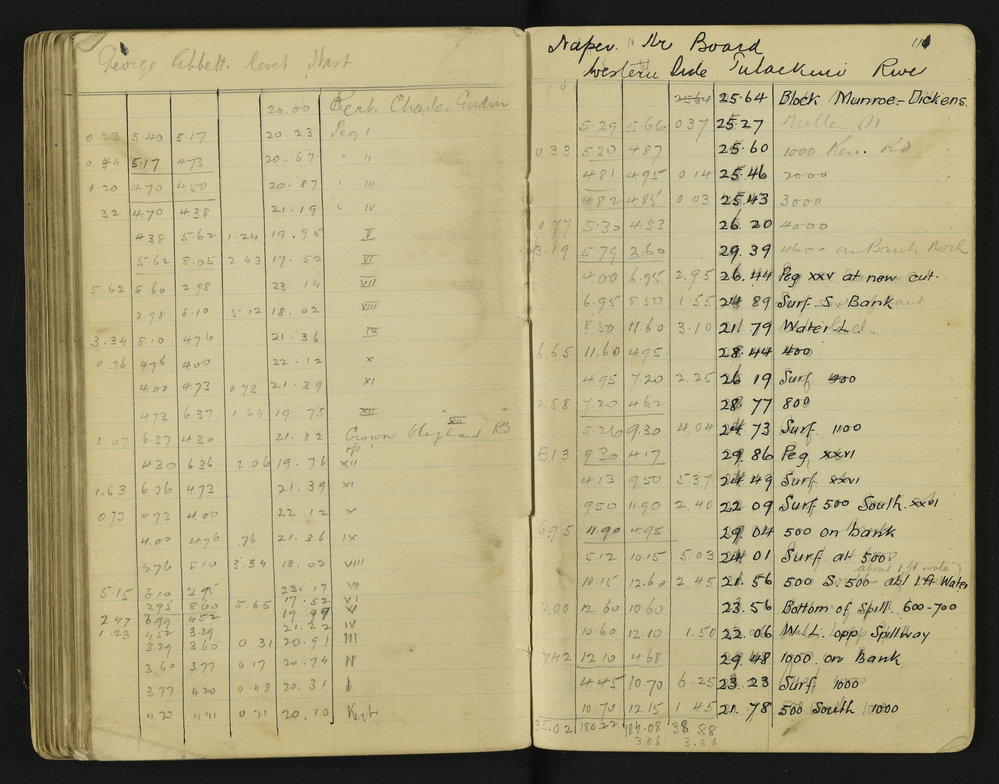 George Ebbett. Covet Hast
20.00 Kerb Charles Gordon
0.23 5.40 5.17 20.23 Peg I
0.44 5.17 4.73 20.67 " II
0.20 4.70 4.50 20.87 " III
.32 4.70 4.38 21.19 " IV
4.38 5.62 1.24 19.95 V
5.62 8.05 2.43 17.52 VI
5.62 8.60 2.98 23.14 VII
2.98 8.10 5.12 18.02 VIII
3.34 8.10 4.76 21.36 IX
0.76 4.76 4.00 22.12 X
4.00 4.73 0.73 21.39 XI
4.73 6.37 1.64 19.75 XII
XII
2.07 6.37 4.30 21.82 Crown
4.30 6.36 2.06 19.76 XII
1.63 6.36 4.73 21.39 XI
0.73 4.73 4.00 22.12 X
4.00 4.76 76 21.36 IX
4.76 8.10 3.34 18.02 VIII
5.15 8.10 2.95 23.17 VII
2.95 8.60 5.65 17.52 VI
2.47 6.99 4.52 19.99 V
1.23 4.52 3.29 21.22 IV
3.29 3.60 0 31 20.91 III
3.60 3.77 0.17 20.74 II
3.77 4.20 0.43 20.31 I
4.20 4.41 0.21 20.10 Kerb
Napier Hr Board
Western Side Tutaekuri River
25.64 25.64 Block Munroe-Dickens
5.29 5.66 0 37 25.27
0 33 5.20 4.87 25.60 1000 Ken. Rd
4.81 4.95 0 14 25.46 2000
4.82 4.85 0 03 25.43 3000
0.77 5.30 4.53 26.20 4000
3.19 5.79 3.60 29.39 4600 on Bank North
4.00 6.95 2.95 26.44 Peg XXV at new cut.
6.95 8.50 1.55 24 89 Surf S. Bank
8.50 11.60 3.10 21 79 Water L.
6.65 11.60 4.95 28.44 400
4.95 7.20 2.25 26 19 Surf 400
2.58 7.20 4.62 28 77 800
5.26 9.30 4.04 24 73 Surf 1100
5.13 9.30 4.17 29.86 Peg XXVI
4.13 9.50 5.37 24 49 Surf XXVI
9.50 11.90 2.40 22 09 Surf 500 South XXVI
6.95 11.90 4.95 29 04 500 on bank
5.12 10.15 5.03 24 01 Surf at 500
about 1 ft water
10.15 12.60 2.45 21.56 500 S. 500 abt 1 ft Water
2.00 12.60 10.60 23.56 Bottom of Spill. 600-700
10.60 12.10 1.50 22.06 W.L. opp Spillway
7.42 12.10 4.68 29.48 1000 on Bank
4.45 10.70 6.25 23.23 Surf 1000
10.70 12.15 1.45 21.78 500 South 1000
35.02 180.22 184.08 38.88
3.86 3.86